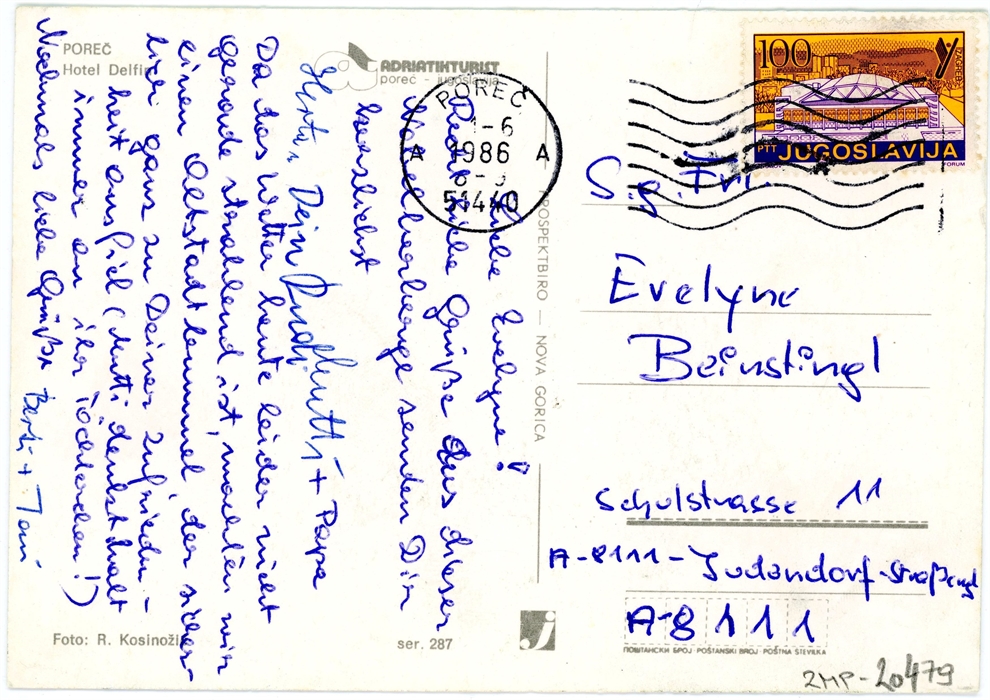 POREČ
Hotel Delfin
ADRIATIKTURIST
poreč - jugoslavija
Liebe Evelyne!
Recht liebe Grüße aus dieser
Nobelherberge senden Dir
herzlichst
Herta, Dein Rudi, Mutti + Papa
Da das Wetter heute leider nicht
gerade strahlend ist, machten wir
einen Altstadtbummel, der sicher-
lich ganz zu Deiner Zufrieden-
heit ausfiel (Mutti denkt halt
immer an ihr Töchterchen!)
Nochmals liebe Grüße Berti + Toni
Foto: R. Kosinožić
ser. 287
PROSPEKTBIRO — NOVA GORICA
POREČ
-6
1986
A A
51440
100
PTT JUGOSLAVIJA
FORUM
S.g. Frl.
Evelyne
Beinstingl
Schulstrasse 11
A-8111-Judendorf-Straßengel
A-8111
ПОШТАНСКИ БРОЈ · POŠTANSKI BROJ · POŠTNA ŠTEVILKA
2MP-20479